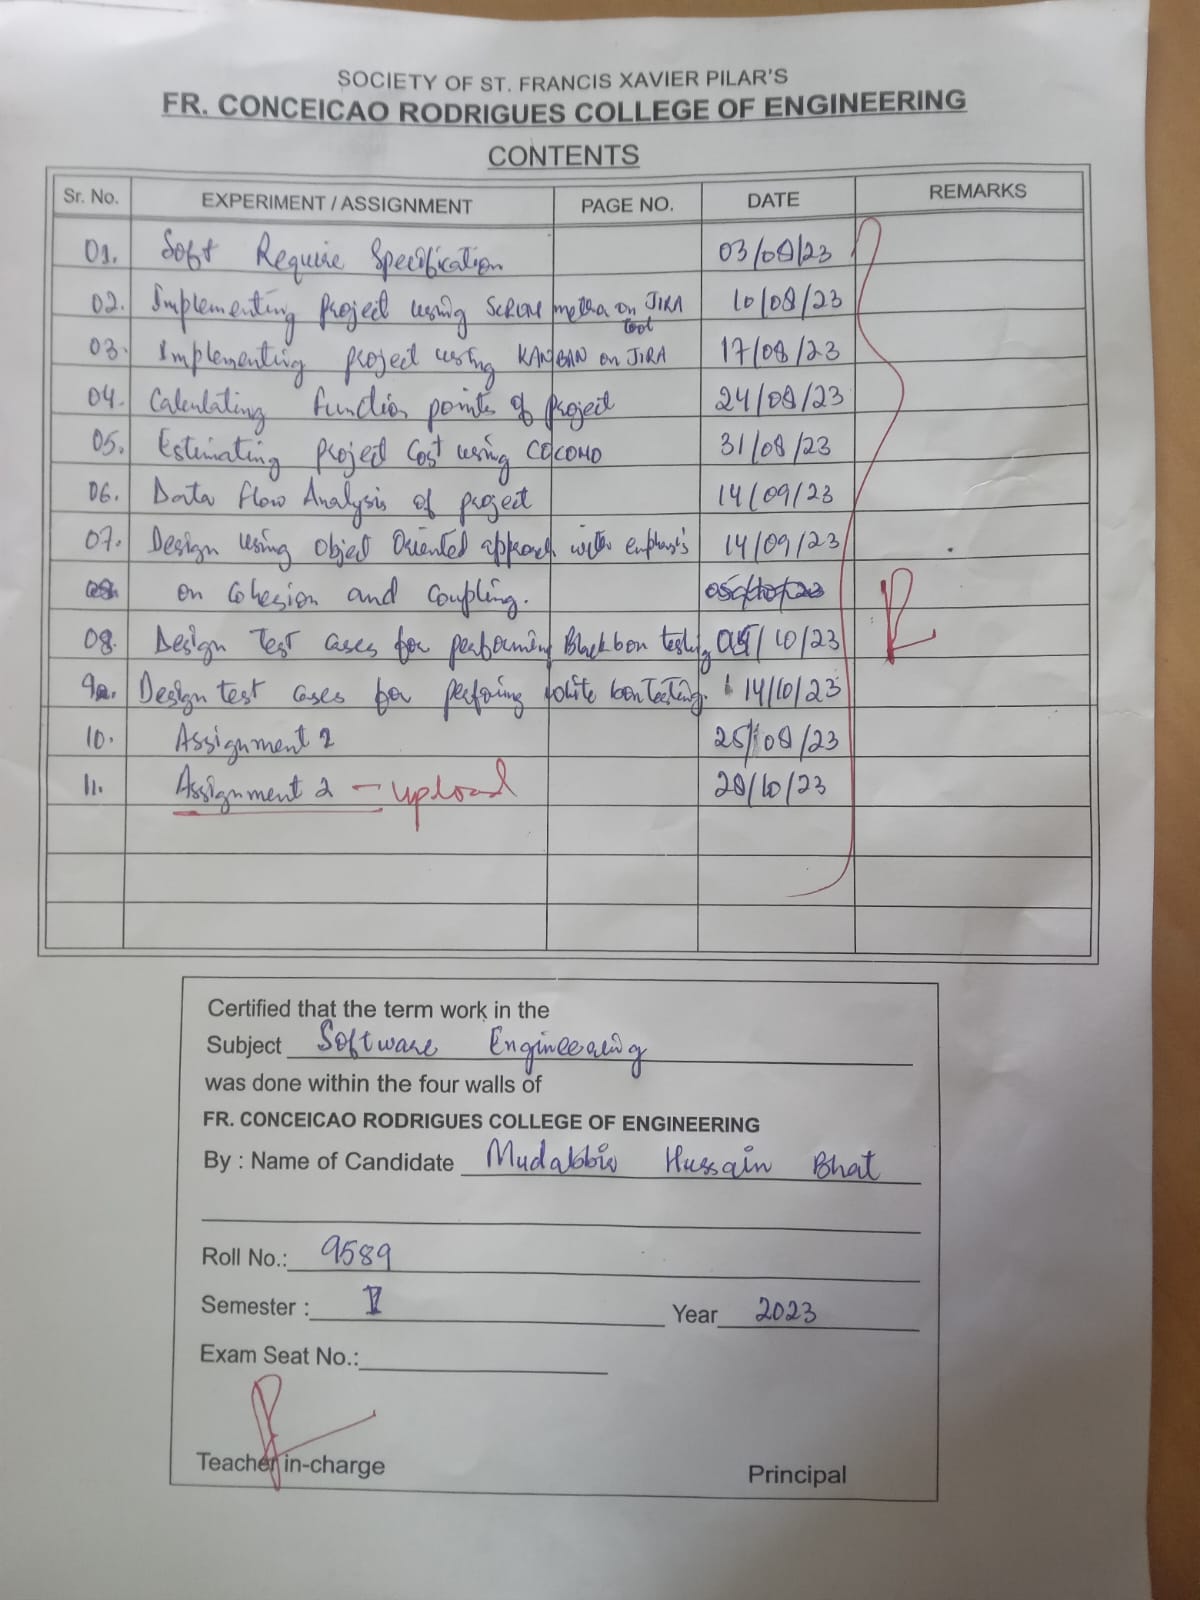 SOCIETY OF ST. FRANCIS XAVIER PILAR'S
FR. CONCEICAO RODRIGUES COLLEGE OF ENGINEERING
CONTENTS
Sr. No. EXPERIMENT / ASSIGNMENT PAGE NO. DATE REMARKS
01. Soft Require Specification 03/08/23
02. Implementing Project using SCRUM on JIRA 10/08/23
tool
03. Implementing project using KANBAN on JIRA 17/08/23
04. Calculating function points of project 24/08/23
05. Estimating Project Cost using COCOMO 31/08/23
06. Data Flow Analysis of project 14/09/23
07. Design using Object Oriented approach with emphasis 14/09/23
on Cohesion and Coupling.
08. Design Test cases for performing Blackbox testing /10/23
Design test cases for white box testing. 14/10/23
10. Assignment 2 25/08/23
11. Assignment 2 – upload 28/10/23
Certified that the term work in the
Subject Software Engineering
was done within the four walls of
FR. CONCEICAO RODRIGUES COLLEGE OF ENGINEERING
By : Name of Candidate Mudabbir Hussain Bhat
Roll No.: 9589
Semester : V Year 2023
Exam Seat No.:
Teacher in-charge Principal